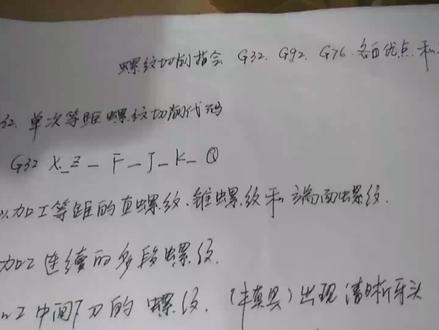 螺纹切削指令 G32. G92. G76. 各自优点和
32. 单次等距螺纹切削代码
G32 X_Z_F_J_K_Q
加工等距的直螺纹、锥螺纹和端面螺纹.
加工连续的多段螺纹.
工中间下刀的螺纹. (丰真具) 出现清晰牙头